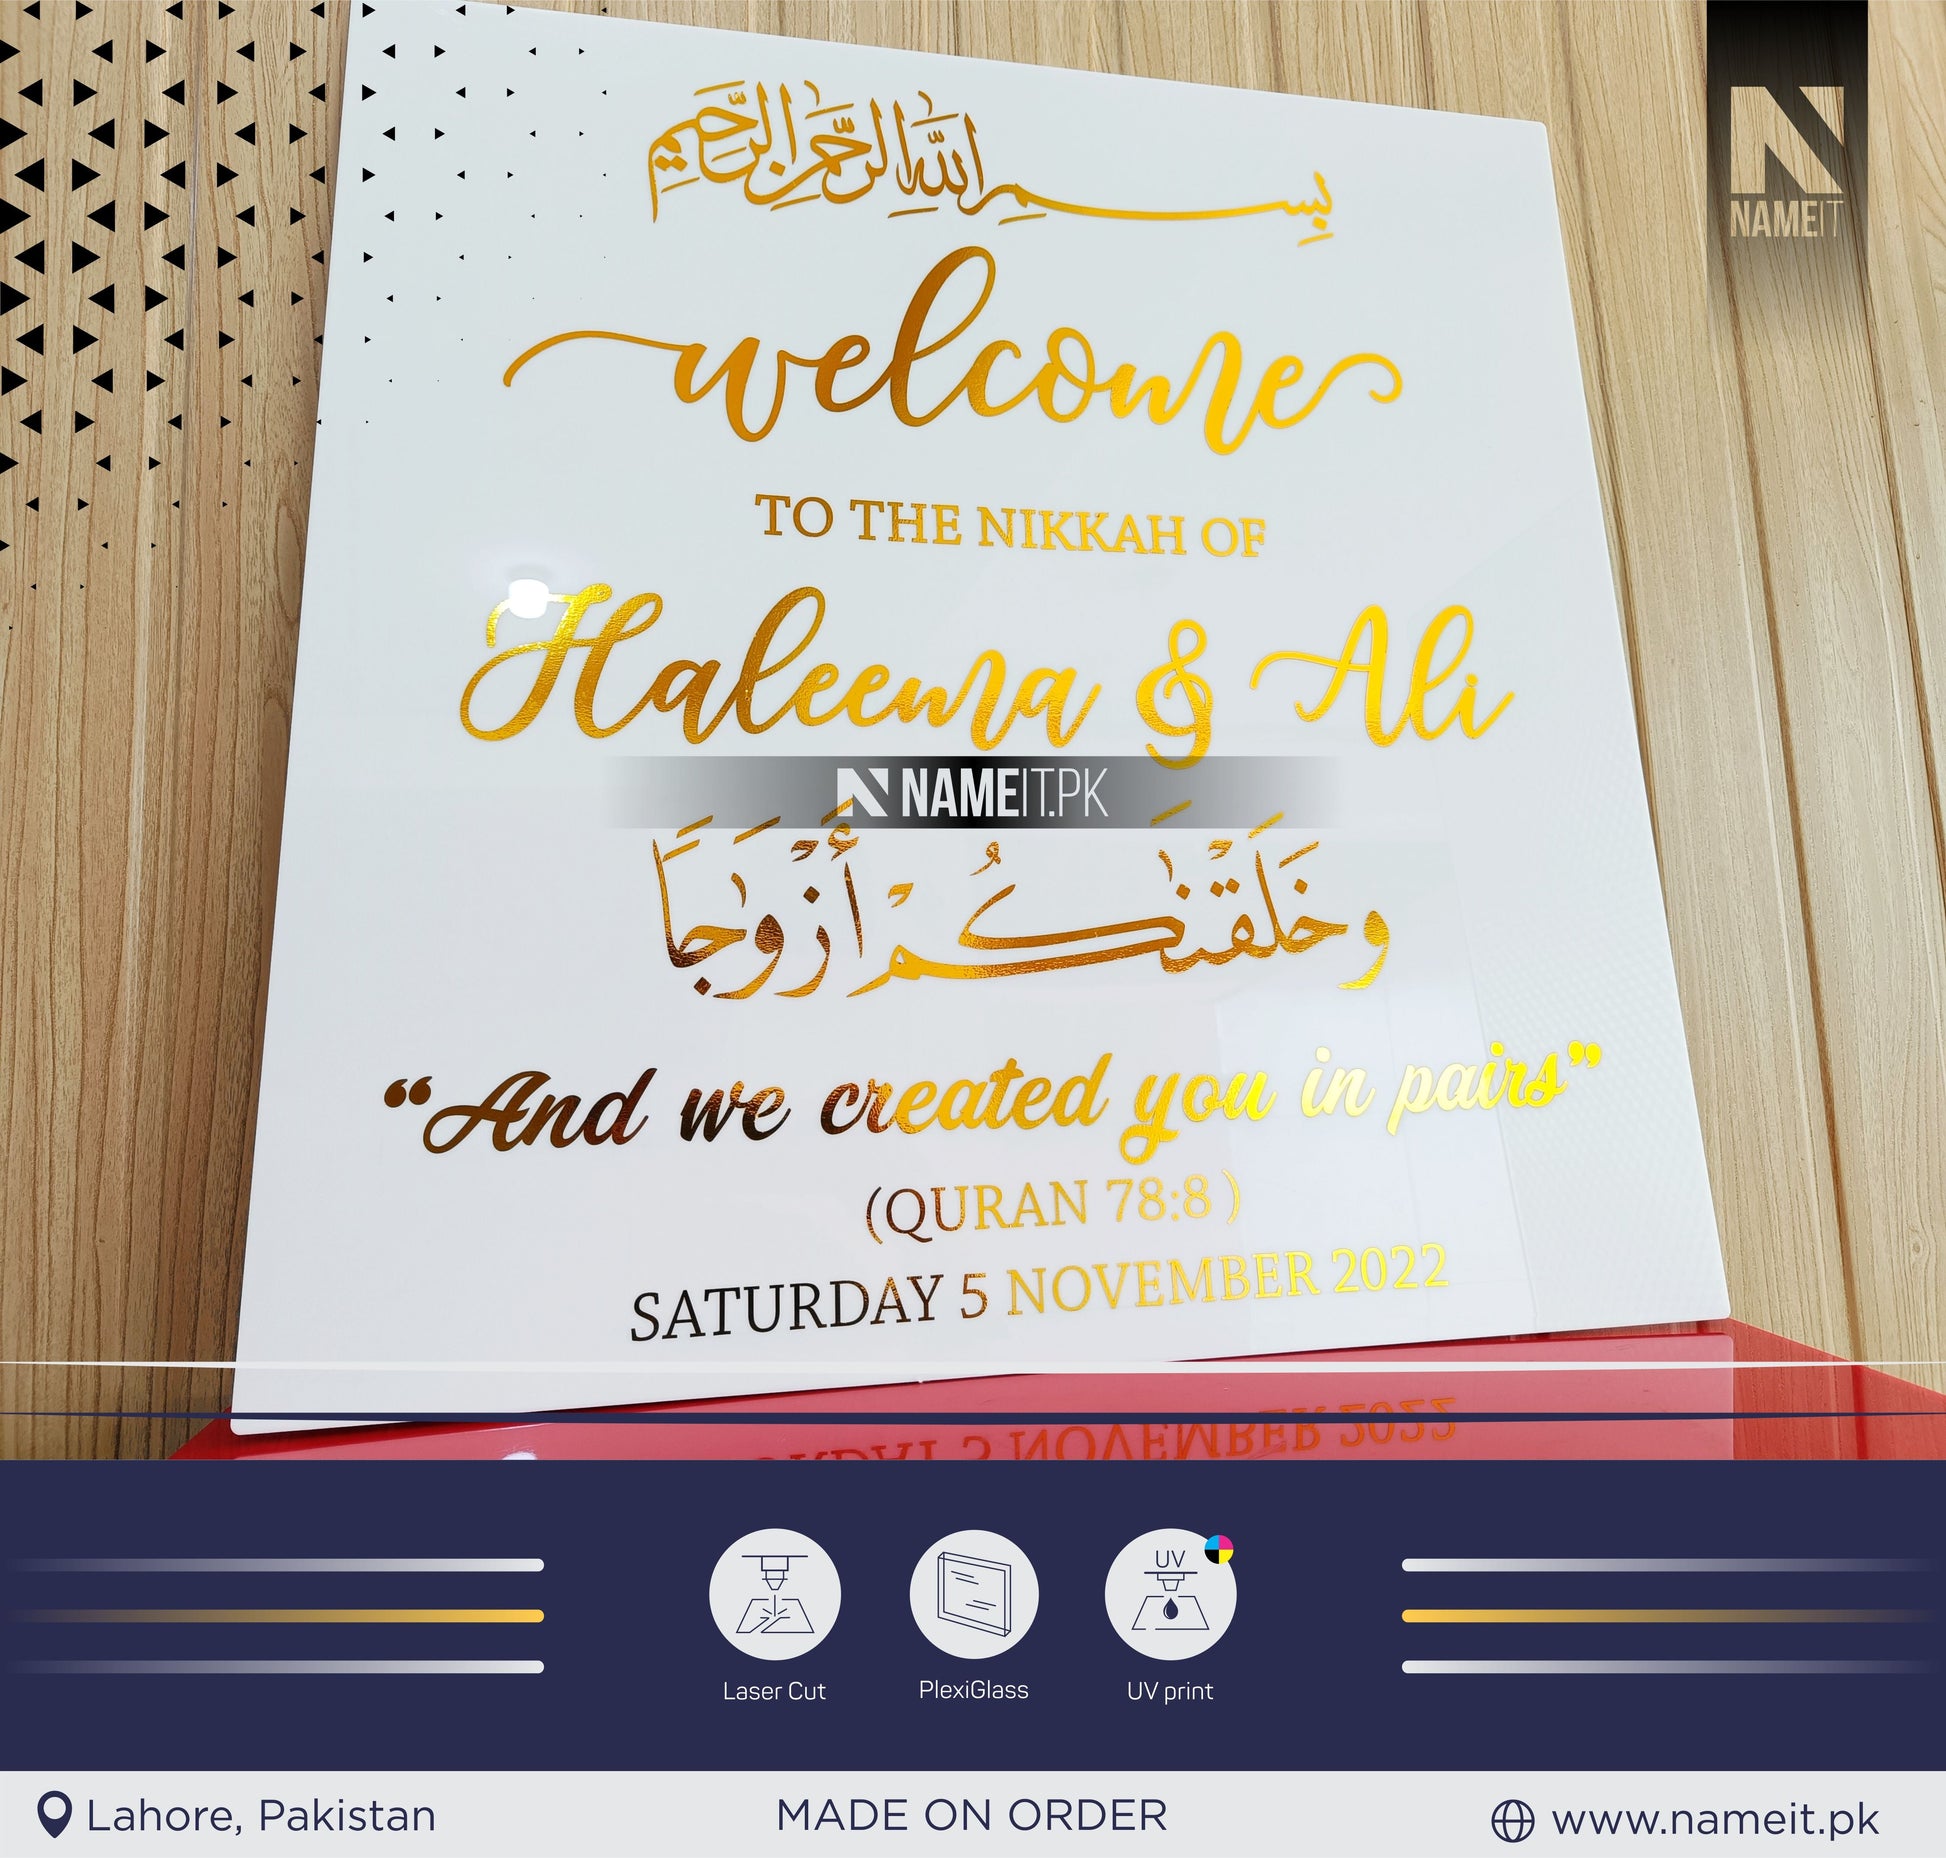 NAMEIT
بِسْمِ اللَّهِ الرَّحْمَٰنِ الرَّحِيمِ
welcome
TO THE NIKKAH OF
Haleema & Ali
NAMEIT.PK
وَخَلَقْنَٰكُمْ أَزْوَٰجًا
“And we created you in pairs”
(QURAN 78:8)
SATURDAY 5 NOVEMBER 2022
UV
Laser Cut
PlexiGlass
UV print
Lahore, Pakistan
MADE ON ORDER
www.nameit.pk